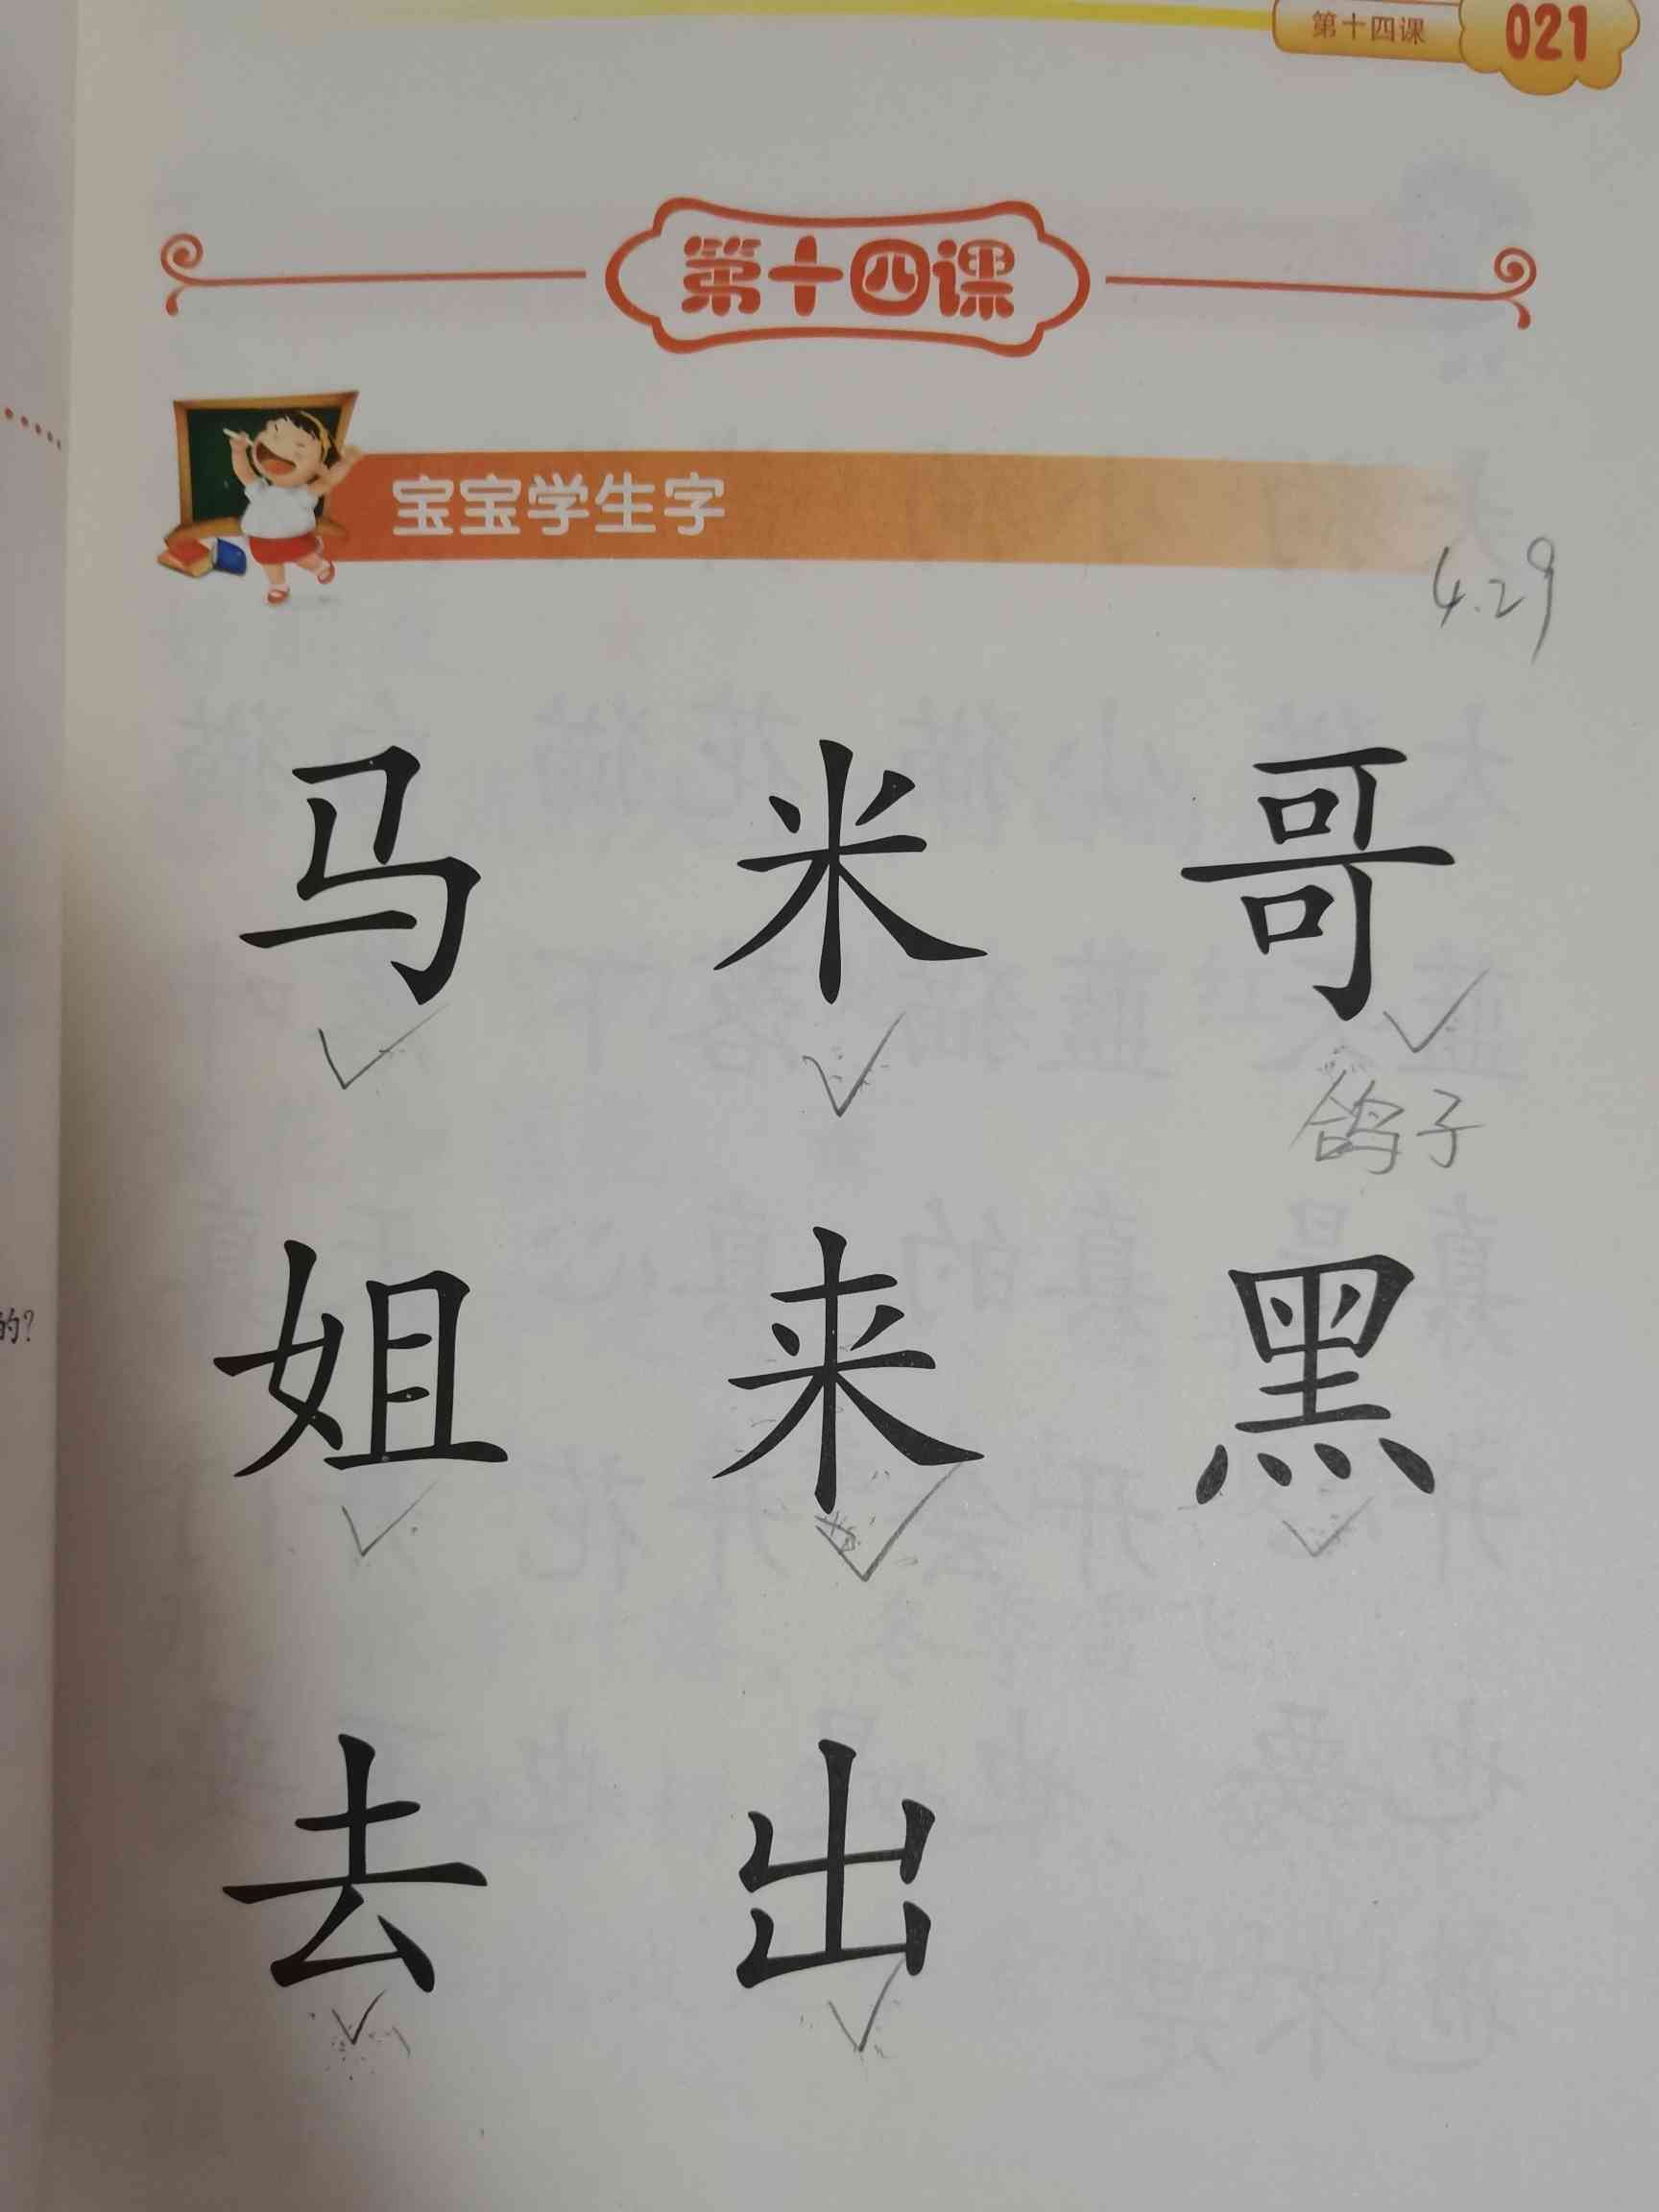 第十四课 021
第十四课
宝宝学生字
4.29
马 米 哥
鸽子
的?
姐 来 黑
去 出